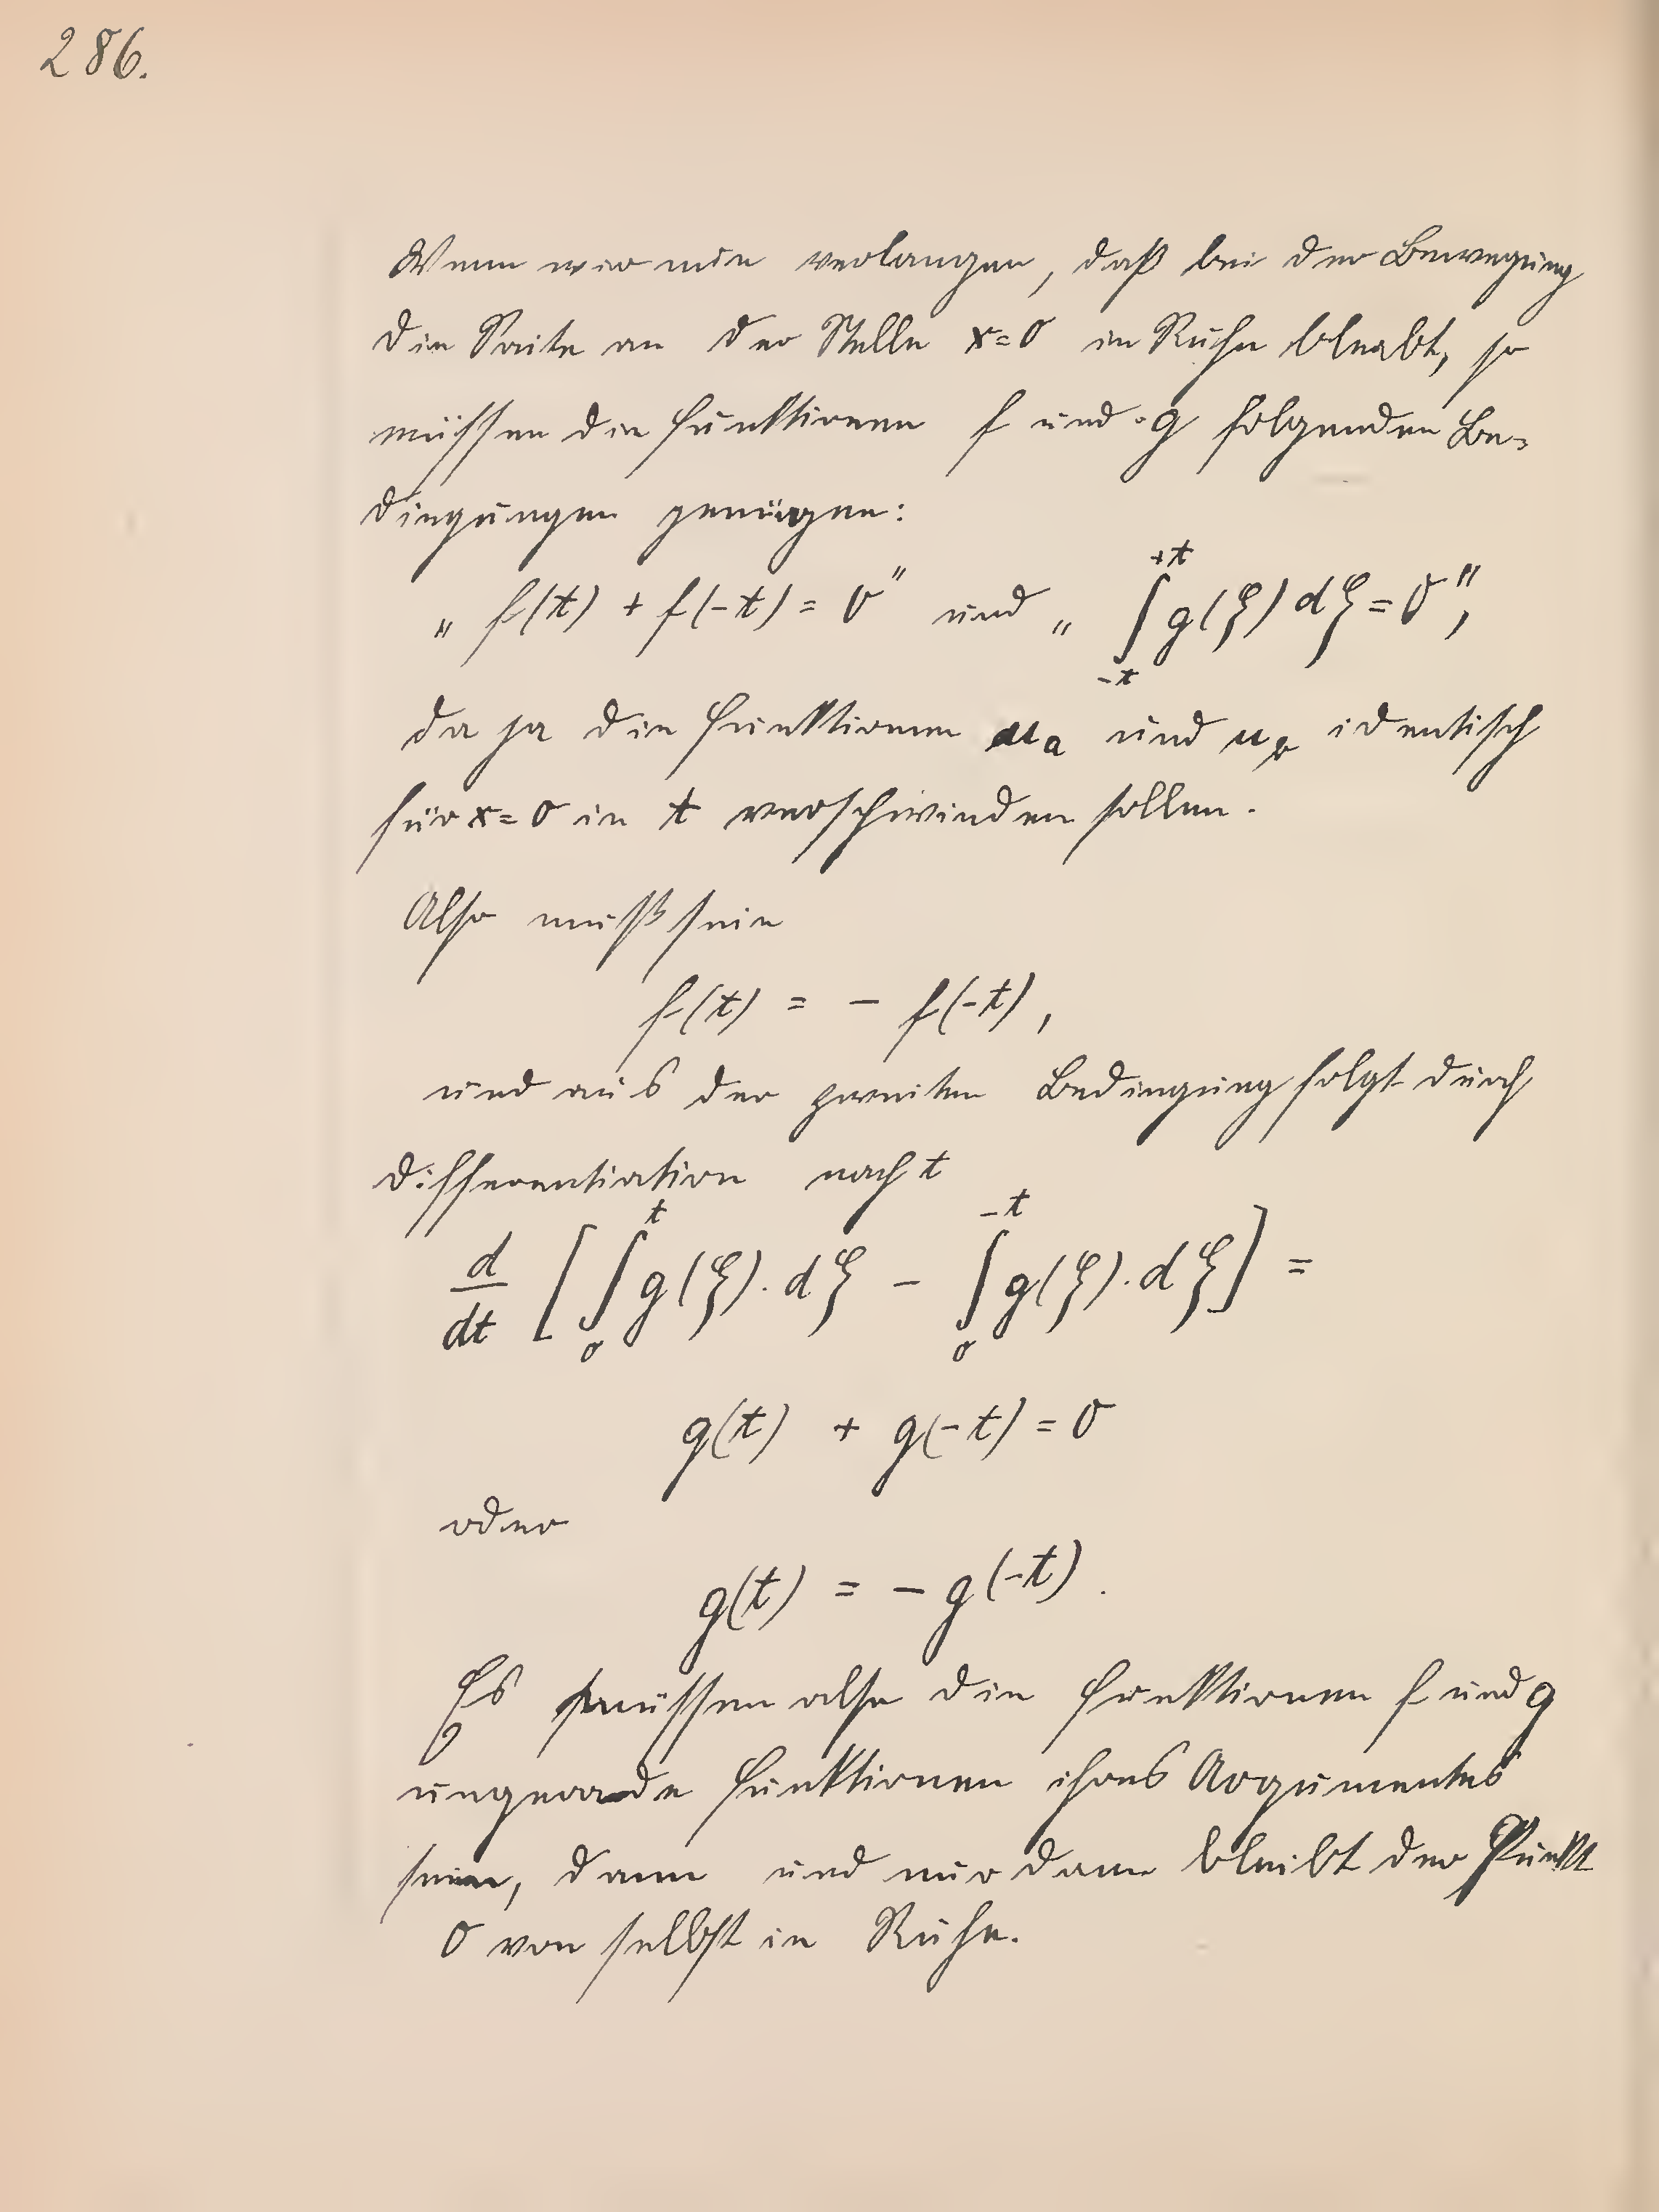 286.
Wenn wir nun verlangen, daß bei der Bewegung
die Saite an der Stelle x=0 in Ruhe bleibt, so
müssen die Funktionen f und g folgenden Be-
dingungen genügen:
„ f(t) + f(-t) = 0 " und „ ∫_{-t}^{+t} g(ξ) dξ = 0 ",
da ja die Funktionen u_a und u_b identisch
für x=0 in t verschwinden sollen.
Also muß sein
f(t) = - f(-t),
und aus der zweiten Bedingung folgt durch
Differentiation nach t
d/dt [ ∫_0^t g(ξ). dξ - ∫_0^{-t} g(ξ). dξ ] =
g(t) + g(-t) = 0
oder
g(t) = - g(-t).
Es müssen also die Funktionen f und g
ungerade Funktionen ihres Argumentes
sein, dann und nur dann bleibt der Punkt
0 von selbst in Ruhe.